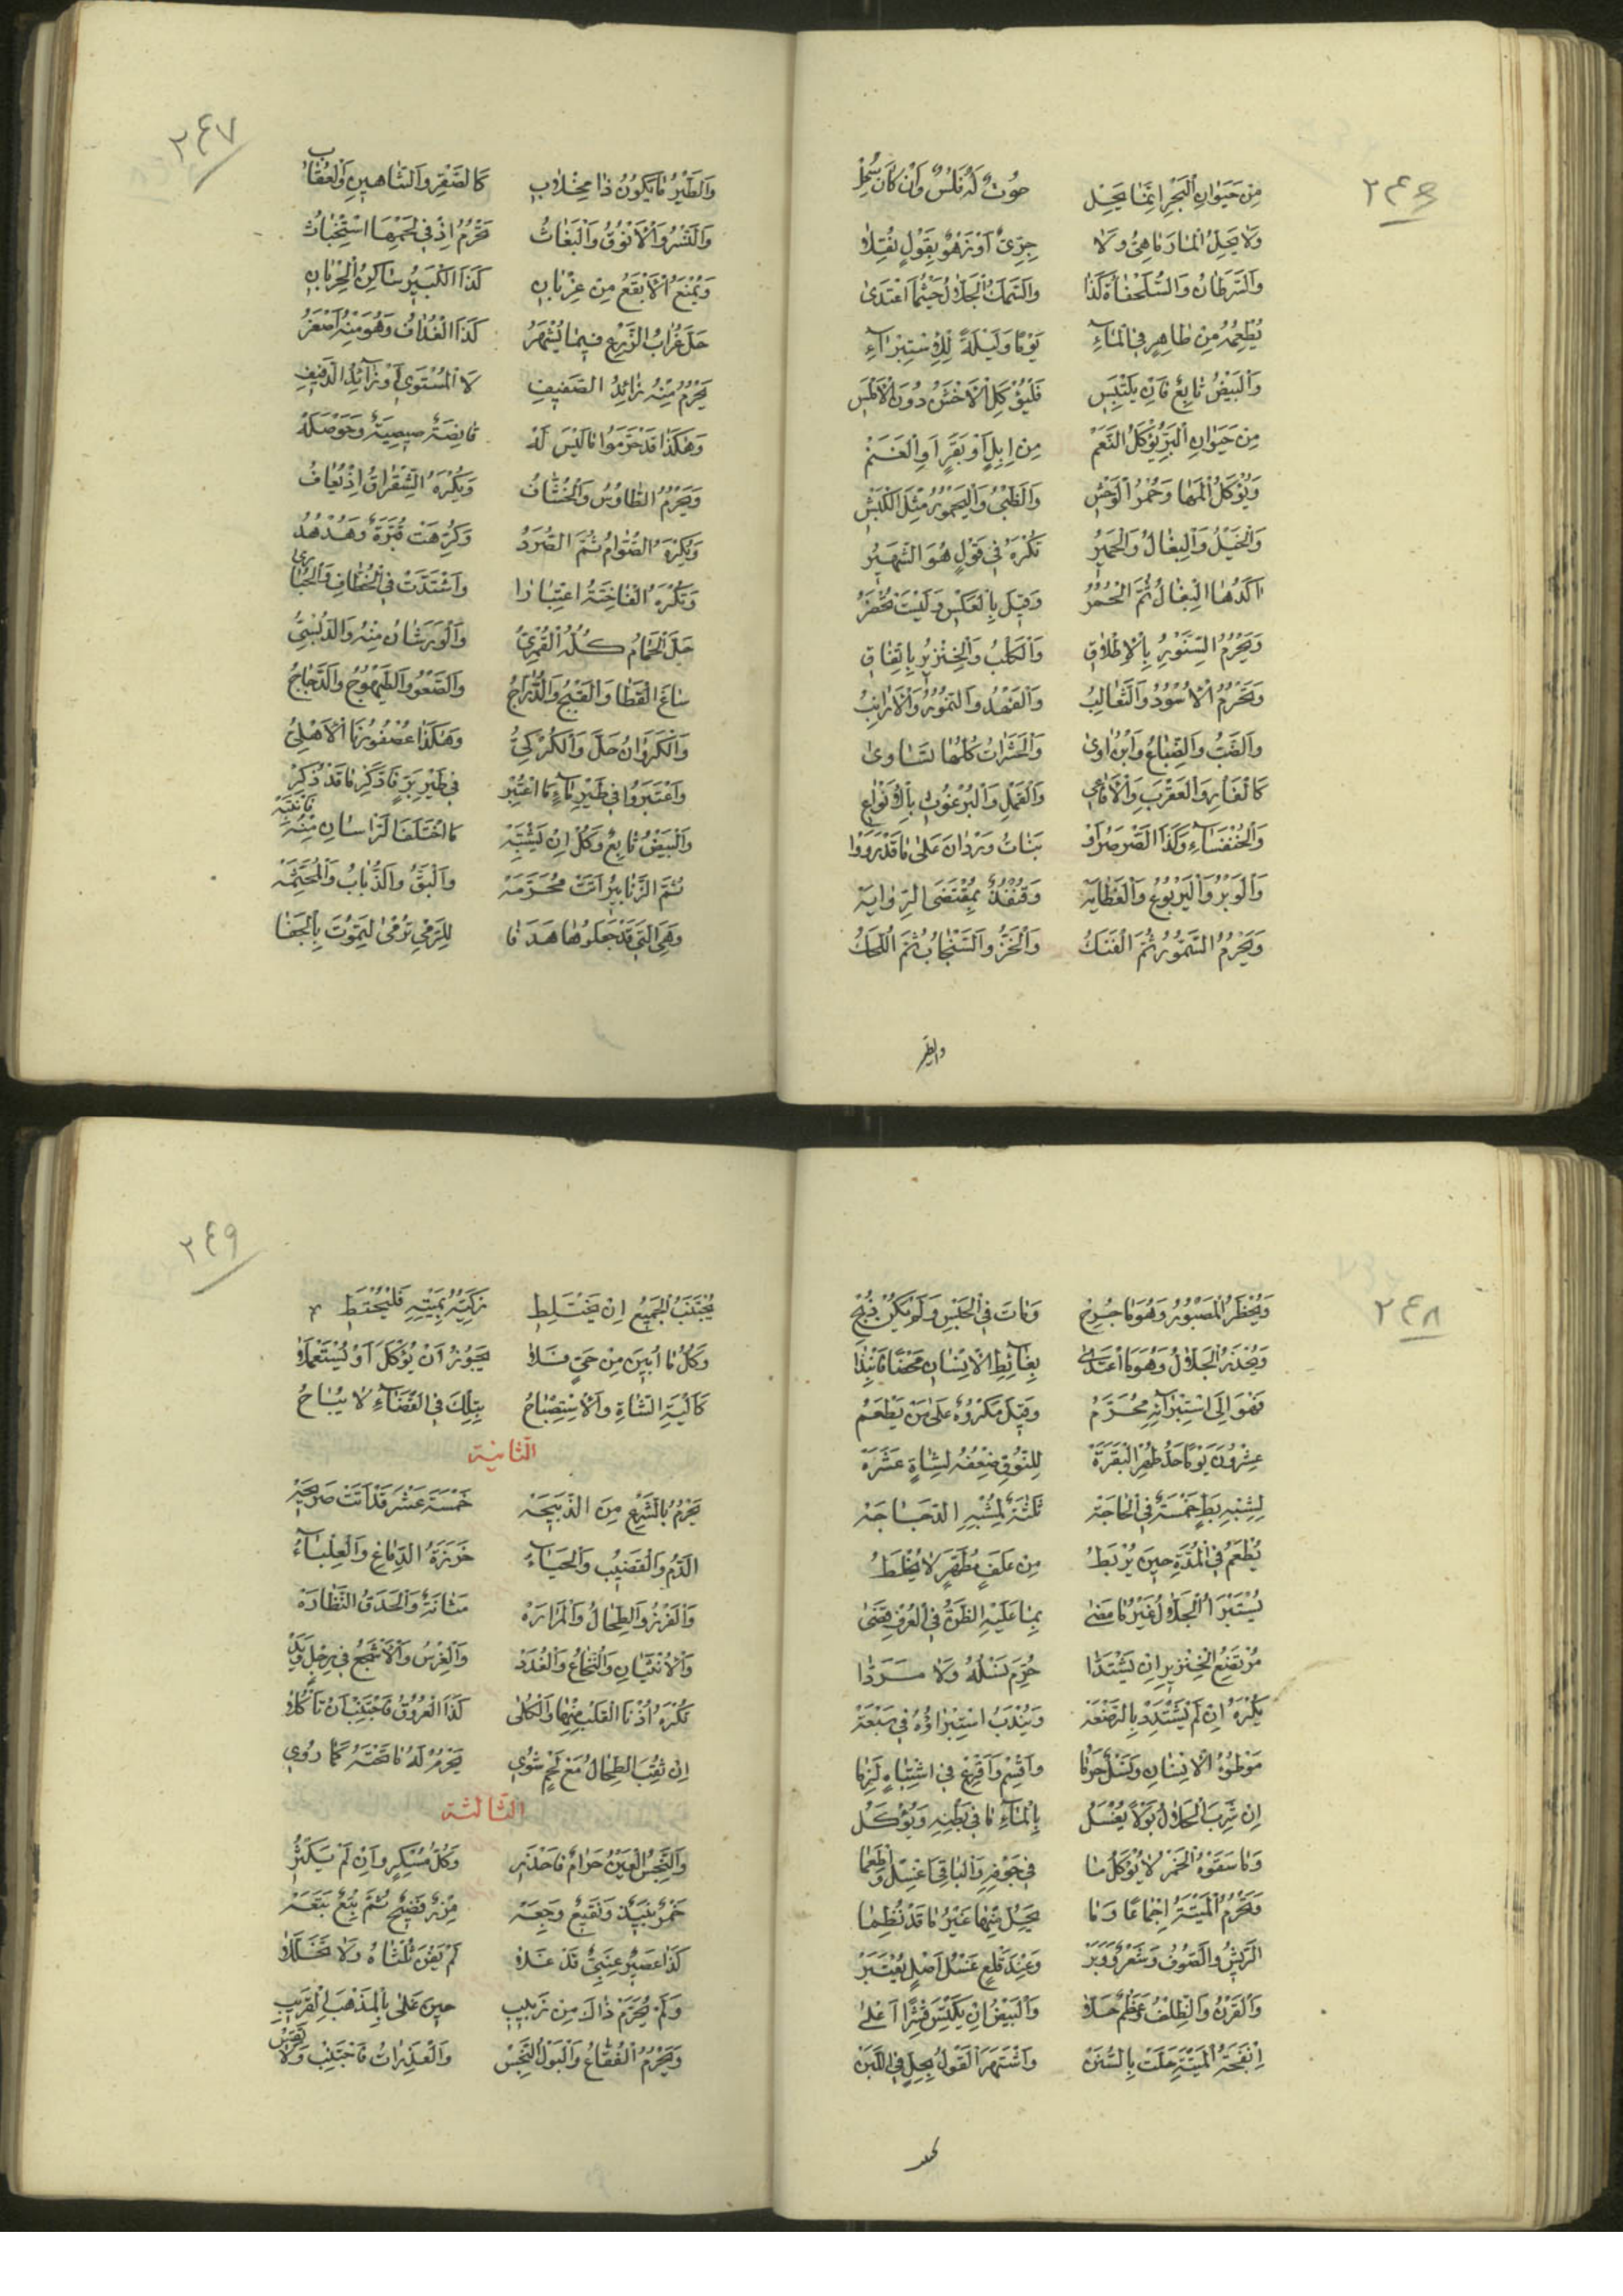 ٢٤٦
مِن حَيَوانِ البَحرِ إنَّما يَحِل حُوتٌ لَهُ فَلسٌ وَإن كانَ
وَلا يَحِلُّ المارَماهِيُّ وَلا جِرِّيٌّ أو زَهوٌ بِقَولٍ نُقِلا
وَالسَّرَطانُ وَالسُّلَحفاةُ كَذا وَالسَّمَكُ الجَلّالُ حَيثُما اغتَذى
يُطعِمُهُ مِن طاهِرٍ في الماءِ يَومًا وَلَيلَةً لِلاِستِبراءِ
وَالبَيضُ تابِعٌ فَإن يَلتَبِس فَليُؤكَلِ الأخشَنُ دُونَ الأملَسِ
مِن حَيَوانِ البَرِّ يُؤكَلُ النَّعَم مِن إبِلٍ أو بَقَرٍ أوِ الغَنَم
وَيُؤكَلُ المَها وَحُمرُ الوَحشِ وَالظَّبيُ وَاليَحمُورُ مِثلَ الكَبشِ
وَالخَيلُ وَالبِغالُ وَالحَمِيرُ تُكرَهُ في قَولٍ هُوَ الشَّهِيرُ
آكَدُها البِغالُ ثُمَّ الحُمُرُ وَقيلَ بِالعَكسِ وَلَيسَت تُحظَرُ
وَيَحرُمُ السِّنَّورُ بِالإطلاقِ وَالكَلبُ وَالخِنزيرُ بِاتِّفاقِ
وَتَحرُمُ الأُسُودُ وَالثَّعالِبُ وَالفَهدُ وَالنُّمُورُ وَالأرانِبُ
وَالضَّبُّ وَالضِّباعُ وَابنُ آوى وَالحَشَراتُ كُلُّها تَساوى
كَالفَأرِ وَالعَقرَبِ وَالأفاعي وَالقَملِ وَالبُرغُوثِ بِالأنواعِ
وَالخُنفَساءِ وَكَذا الصَّرصَرُ أو بَناتُ وَردانَ عَلى ما قَد رَوَوا
وَالوَبرُ وَاليَربُوعُ وَالعَظايَه وَقُنفُذٌ بِمُقتَضَى الرِّوايَه
وَيَحرُمُ السَّمُّورُ ثُمَّ الفَنَكُ وَالخَزُّ وَالسِّنجابُ ثُمَّ اللُّحَكُ
والطير
٢٤٧
وَالطَّيرُ ما يَكُونُ ذا مِخلابِ كَالصَّقرِ وَالشّاهينِ وَالعُقابِ
وَالنَّسرُ وَالأنُوقُ وَالبَغاثُ تَحرُمُ إذ في لَحمِها استِخباثُ
وَيُمنَعُ الأبقَعُ مِن غِربانِ كَذا الكَبيرُ ساكِنُ الخِربانِ
حَلَّ غُرابُ الزَّرعِ فيما يُشهَرُ كَذا الغُدافُ وَهُوَ مِنهُ أصغَرُ
يَحرُمُ مِنهُ زائِدُ الصَّفيفِ لا المُستَوي أو زائِدُ الدَّفيفِ
وَهكَذا قَد حَرَّمُوا ما لَيسَ لَه قانِصَةٌ صيصِيَةٌ وَحَوصَلَه
وَيَحرُمُ الطّاوُسُ وَالخُشّافُ وَيُكرَهُ الشِّقِرّاقُ إذ يُعافُ
وَيُكرَهُ الصُّوّامُ ثُمَّ الصُّرَدُ وَكُرِهَت قُبَّرَةٌ وَهُدهُدُ
وَتُكرَهُ الفاخِتَةُ اعتِبارا وَاشتَدَّت في الخُطّافِ وَالحُبارى
حَلَّ الحَمامُ كُلُّهُ القُمرِيُّ وَالوَرَشانُ مِنهُ وَالدُّبسِيُّ
ساغَ القَطا وَالقَبجُ وَالدُّرّاجُ وَالصَّعوُ وَالطَّيهُوجُ وَالدَّجاجُ
وَالكَرَوانُ حَلَّ وَالكُركِيُّ وَهكَذا عُصفُورُنا الأهلِيُّ
وَاعتَبَرُوا في طَيرِ ماءٍ ما اعتُبِر في طَيرِ بَرٍّ فَادَّكِر ما قَد ذُكِر
وَالبَيضُ تابِعٌ وَكُل إن يَشتَبِه ما اختَلَفَ الرَّأسانِ مِنهُ فَانتَبِه
ثُمَّ الزَّنابيرُ أتَت مُحَرَّمَه وَالبَقُّ وَالذُّبابُ وَالمُجَثَّمَه
وَهيَ الَّتي قَد جَعَلُوها هَدَفا لِلرَّميِ تُرمى لِتَمُوتَ بِالجَفا
٢٤٨
وَيُحظَرُ المَصبُورُ وَهُوَ ما جُرِح وَماتَ في الحَبسِ وَلَم يَكُن ذُبِح
وَيُحذَرُ الجَلّالُ وَهُوَ ما اغتَذى بِغائِطِ الإنسانِ مَحضًا فَانبِذا
فَهوَ إلَى استِبرائِهِ مُحَرَّمُ وَقيلَ مَكرُوهٌ عَلى مَن يَطعَمُ
عِشرُونَ يَومًا حَدُّ طُهرِ البَقَرَه لِلنُّوقِ ضِعفُهُ لِشاةٍ عَشَرَه
لِشِبهِ بَطٍّ خَمسَةٌ في الحاجَه ثَلثَةٌ لِمُشبِهِ الدَّجاجَه
يُطعَمُ في المُدَّةِ حينَ يُربَطُ مِن عَلَفٍ مُطَهَّرٍ لا يُخلَطُ
يُستَبرَأُ الجَلّالُ غَيرُ ما مَضى بِما عَلَيهِ الظَّنُّ في العُرفِ قَضى
مُرتَضِعُ الخِنزيرِ إن يَشتَدّا حُرِّمَ نَسلُهُ وَلا مَرَدّا
يُكرَهُ إن لَم يَشتَدِد بِالرَّضعَه وَيُندَبُ استِبراؤُهُ في سَبعَه
مَوطُوءُ الإنسانِ وَنَسلٌ حَرُما وَاقسِم وَأقرِع في اشتِباهٍ لَزِما
إن شَرِبَ الحَلالُ بَولًا يُغسَلُ بِالماءِ ما في بَطنِهِ وَيُؤكَلُ
وَما سَقَوهُ الخَمرَ لا يُؤكَلُ ما في جَوفِهِ وَالباقِيَ اغسِل وَاطعَما
وَتَحرُمُ المَيتَةُ إجماعًا وَما يَحِلُّ مِنها غَيرُ ما قَد نُظِما
الرّيشُ وَالصُّوفُ وَشَعرٌ وَوَبَر وَعِندَ قَلعٍ غَسلُ أصلٍ يُعتَبَر
وَالقَرنُ وَالظِّلفُ وَعَظمٌ حَلّا وَالبَيضُ إن يَكتَسِ قِشرًا أعلى
إنفَحَةُ المَيتَةِ حَلَّت بِالسُّنَن وَاشتَهَرَ القَولُ بِحِلٍّ في اللَّبَن
٢٤٩
يُجتَنَبُ الجَميعُ إن يَختَلِطِ زَكِيُّهُ بِمَيتِهِ فَليُحتَطِ
وَكُلُّ ما أُبينَ مِن حَيٍّ فَلا يَجُوزُ أن يُؤكَلَ أو يُستَعمَلا
كَأليَةِ الشّاةِ وَالاِستِصباحُ بِتِلكَ في الفَضاءِ لا يُباحُ
الثانية
يَحرُمُ بِالشَّرعِ مِنَ الذَّبيحَه خَمسَةَ عَشَر قَد أتَت صَريحَه
الدَّمُ وَالقَضيبُ وَالحَياءُ خَرَزَةُ الدِّماغِ وَالعِلباءُ
وَالفَرثُ وَالطِّحالُ وَالمَرارَه مَثانَةٌ وَالحَدَقُ النَّظّارَه
وَالأُنثَيانِ وَالنُّخاعُ وَالغُدَد وَالفَرسُ وَالأشجَعُ في رِجلٍ وَيَد
تُكرَهُ أُذنا القَلبِ مِنها وَالكُلى كَذا العُرُوقُ فَاجتَنِب أن تَأكُلا
إن ثُقِبَ الطِّحالُ مَع لَحمٍ شُوِي يَحرُمُ لَهُ ما تَحتَهُ كَما رُوِي
الثالثة
وَالنَّجِسُ العَينُ حَرامٌ فَاحذَرِ وَكُلُّ مُسكِرٍ وَإن لَم يَكثُرِ
خَمرٌ نَبيذٌ وَنَقيعٌ وَجِعَه مِزرٌ فَضيخٌ ثُمَّ بِتعٌ تَبِعَه
كَذا عَصيرٌ عِنَبِيٌّ قَد غَلا لَم يَفنَ ثُلثاهُ وَلا تَخَلَّلا
وَلَم يُحَرَّم ذاكَ مِن زَبيبِ حينَ غَلى بِالمَذهَبِ القَريبِ
وَيَحرُمُ الفُقّاعُ وَالبَولُ النَّجِس وَالعَذِراتُ فَاجتَنِب وَلا